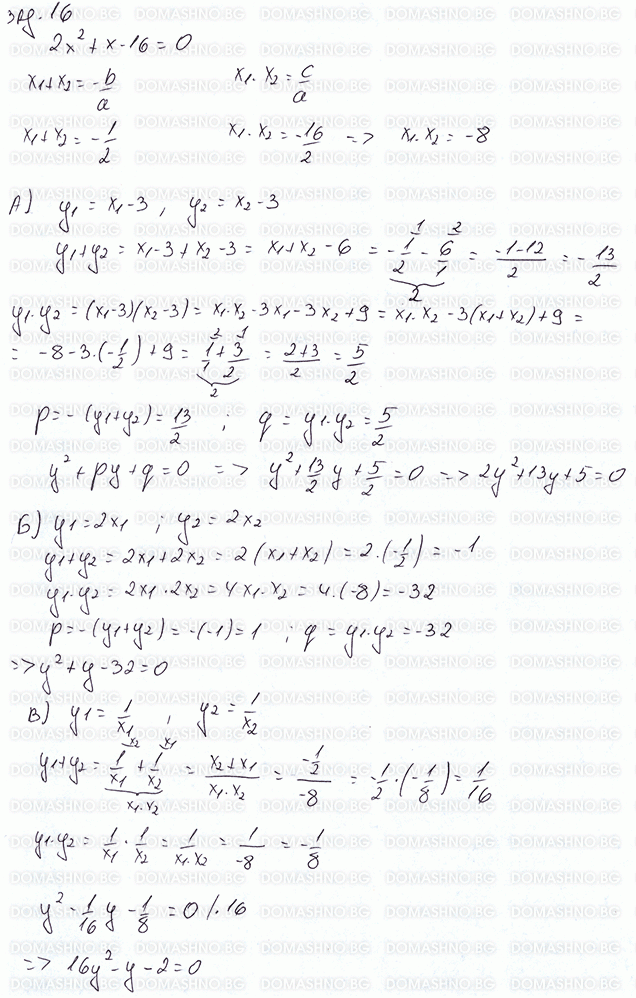 зад. 16
2x² + x - 16 = 0
x₁ + x₂ = -b/a    x₁ . x₂ = c/a
x₁ + x₂ = -1/2    x₁ . x₂ = -16/2 => x₁ . x₂ = -8
А) y₁ = x₁ - 3 , y₂ = x₂ - 3
y₁ + y₂ = x₁ - 3 + x₂ - 3 = x₁ + x₂ - 6 = -1/2 - 6/1 = (-1-12)/2 = -13/2
y₁ . y₂ = (x₁-3)(x₂-3) = x₁ . x₂ - 3x₁ - 3x₂ + 9 = x₁ . x₂ - 3(x₁+x₂) + 9 =
= -8 - 3 . (-1/2) + 9 = 1/1 + 3/2 = (2+3)/2 = 5/2
p = -(y₁+y₂) = 13/2 ; q = y₁ . y₂ = 5/2
y² + py + q = 0 => y² + 13/2 y + 5/2 = 0 => 2y² + 13y + 5 = 0
Б) y₁ = 2x₁ ; y₂ = 2x₂
y₁ + y₂ = 2x₁ + 2x₂ = 2(x₁ + x₂) = 2 . (-1/2) = -1
y₁ . y₂ = 2x₁ . 2x₂ = 4x₁ . x₂ = 4 . (-8) = -32
p = -(y₁+y₂) = -(-1) = 1 ; q = y₁ . y₂ = -32
=> y² + y - 32 = 0
В) y₁ = 1/x₁ ; y₂ = 1/x₂
y₁ + y₂ = 1/x₁ + 1/x₂ = (x₂ + x₁)/(x₁ . x₂) = (-1/2)/(-8) = -1/2 . (-1/8) = 1/16
y₁ . y₂ = 1/x₁ . 1/x₂ = 1/(x₁ . x₂) = 1/-8 = -1/8
y² - 1/16 y - 1/8 = 0 / . 16
=> 16y² - y - 2 = 0